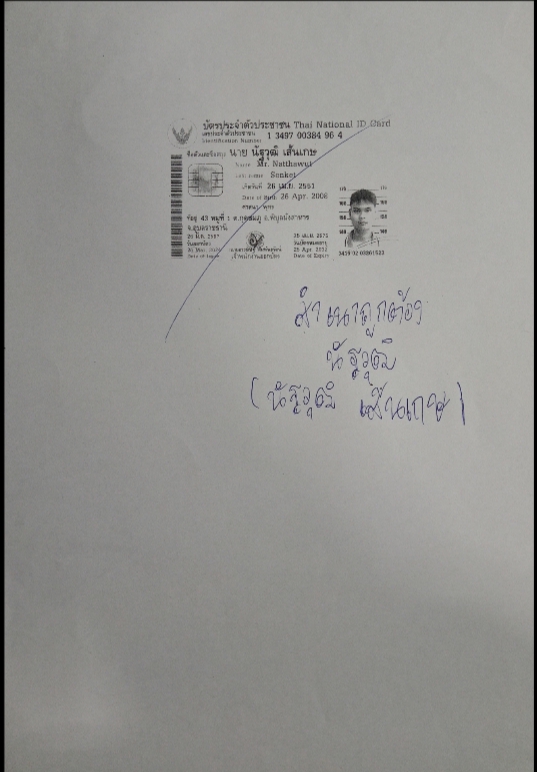 บัตรประจำตัวประชาชน Thai National ID Card
เลขประจำตัวประชาชน
Identification Number 1 3497 00384 96 4
ชื่อตัวและชื่อสกุล นาย นัฐวุฒิ เส้นเกษ
Name Mr. Natthawut
Last name Senket
เกิดวันที่ 26 เม.ย. 2551
Date of Birth 26 Apr. 2008
ศาสนา พุทธ
ที่อยู่ 43 หมู่ที่ 1 ต.กุดชมภู อ.พิบูลมังสาหาร
จ.อุบลราชธานี
วันออกบัตร
Date of Issue
เจ้าพนักงานออกบัตร
25 เม.ย. 2575
วันบัตรหมดอายุ
25 Apr. 2032
Date of Expiry
สำเนาถูกต้อง
นัฐวุฒิ
(นัฐวุฒิ เส้นเกษ)